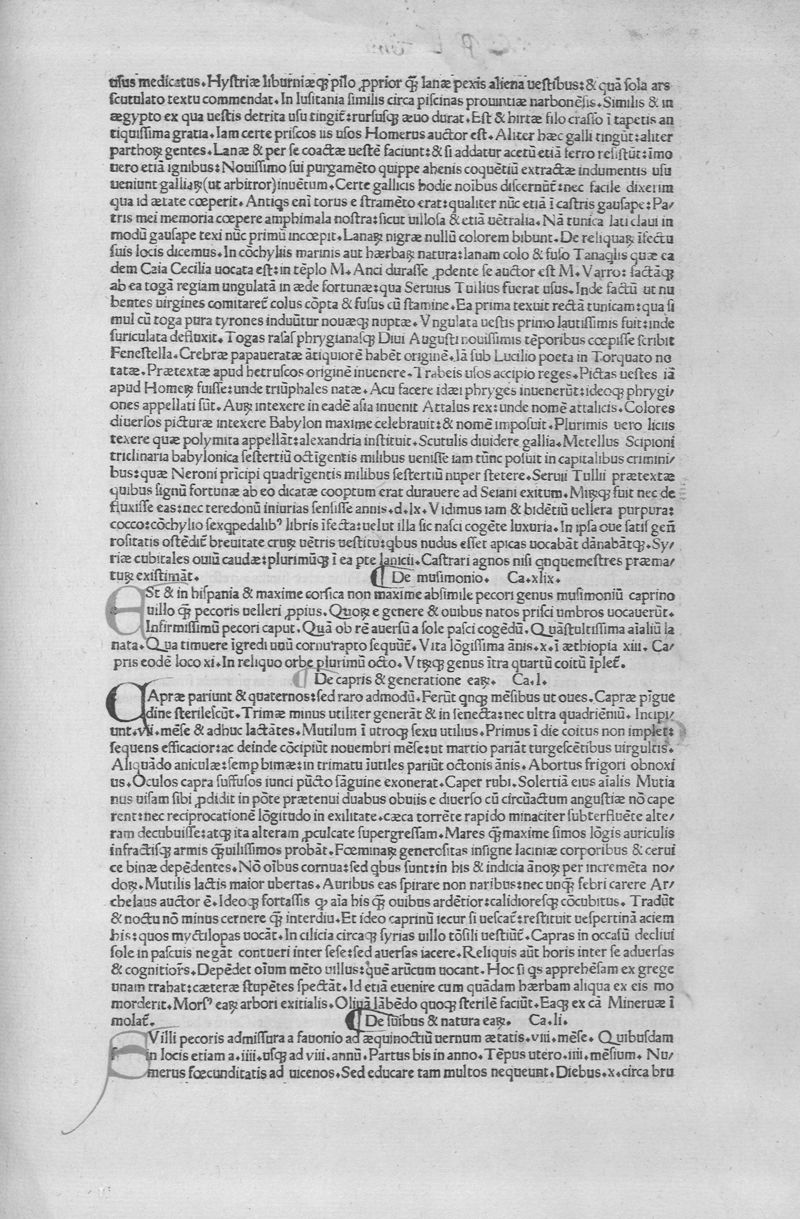 usus medicatus. Hystriæ liburniæq́ꝫ pilo ꝓprior q̃ꝫ lanæ pexis aliena uestibus: & quā sola ars
scutulato textu commendat. In lusitania similis circa piscinas prouintiæ narbonēsis. Similis & in
ægypto ex qua uestis detrita usu tingit̃: rursusq̨ æuo durat. Est & hirtæ filo crasso ī tapetis an
tiquissima gratia. Iam certe priscos iis usos Homerus auctor est. Aliter hæc galli tingūt: aliter
parthoꝝ gentes. Lanæ & per se coactæ uestē faciunt: & si addatur acetū etiā ferro resistūt: imo
uero etiā ignibus: Nouissimo sui purgamēto quippe ahenis coquētiū extractæ indumentis usu
ueniunt galliaꝝ (ut arbitror) inuētum. Certe gallicis hodie noībus discernūt̃: nec facile dixerim
qua id ætate cœperit. Antiqs enī torus e stramēto erat: qualiter nūc etiā ī castris gausape: Pa/
tris mei memoria cœpere amphimala nostra: sicut uillosa & etiā uētralia. Nā tunica lati claui in
modū gausape texi nūc primū incœpit. Lanaꝝ nigræ nullū colorem bibunt. De reliquaꝝ īfectu
suis locis dicemus. In cōchyliis marinis aut hærbaꝝ natura: lanam colo & fuso Tanaqlis quæ ea
dem Caia Cecilia uocata est: in tēplo M. Anci durasse ꝓdente se auctor est M. Varro: factāq̨
ab ea togā regiam ungulatā in æde fortunæ: qua Seruius Tuilius fuerat usus. Inde factū ut nu
bentes uirgines comitaret̃ colus cōpta & fusus cū stamine. Ea prima texuit rectā tunicam: qua si
mul cū toga pura tyrones induūtur nouæq̨ nuptæ. Vngulata uestis primo lautissimis fuit: inde
suriculata defluxit. Togas rasas phrygianasq̨ Diui Augusti nouissimis tēporibus cœpisse scribit
Fenestella. Crebræ papaueratæ ātiquiorē habēt originē. Iā sub Lucilio poeta in Torquato no
tatæ. Prætextæ apud hetruscos originē inuenere. Trabeis usos accipio reges. Pictas uestes iā
apud Homeꝝ fuisse: unde triūphales natæ. Acu facere idæi phryges inuenerūt: ideoq̨ phrygi/
ones appellati sūt. Auꝝ intexere in eadē asia inuenit Attalus rex: unde nomē attalicis. Colores
diuersos picturæ intexere Babylon maxime celebrauit: & nomē imposuit. Plurimis uero liciis
texere quæ polymita appellāt: alexandria instituit. Scutulis diuidere gallia. Metellus Scipioni
tricliniaria babylonica sestertiū octīgentis milibus uenisse iam tūnc posuit in capitalibus crimini/
bus: quæ Neroni prīcipi quadrīgentis milibus sestertiū nuper stetere. Seruii Tullii prætextæ
quibus signū fortunæ ab eo dicatæ cooptum erat durauere ad Seiani exitum. Miꝝq̨ fuit nec de
fluxisse eas: nec teredonū iniurias sensisse annis. d. lx. Vidimus iam & bidētiū uellera purpura:
cocco: cōchylio sexq̨pedalibꝰ libris īfecta: uelut illa sic nasci cogēte luxuria. In ipsa oue satis gen̄
rositatis ostēdit̃ breuitate cruꝝ uētris uestitu: qbus nudus esset apicas uocabāt dānabātq̨. Sy/
riæ cubitales ouiū caudæ: plurimūq̨ ī ea pte lanicii. Castrari agnos nisi qnquemestres præma/
tuꝝ existimāt. ¶ De musimonio. Ca. xlix.
ESt & in hispania & maxime corsica non maxime absimile pecori genus musimoniū caprino
uillo q̃ꝫ pecoris uelleri ꝓpius. Quoꝝ e genere & ouibus natos prisci umbros uocauerūt.
Infirmissimū pecori caput. Quā ob rē auersū a sole pasci cogēdū. Quāstultissima aīaliū la
nata. Qua timuere īgredi unū cornu rapto sequūt̃. Vita lōgissima ānis. x. ī æthiopia xiii. Ca/
pris eodē loco xi. In reliquo orbe plurimū octo. Vtrꝫq̨ genus ītra quartū coitū īplet̃.
¶ De capris & generatione eaꝝ. Ca. l.
CAprae pariunt & quaternos: sed raro admodū. Ferūt qnq̨ mēsibus ut oues. Capræ pīgue
dine sterilescūt. Trimæ minus utiliter generāt & in senecta: nec ultra quadriēniū. Incipi/
unt. vii. mēse & adhuc lactātes. Mutilum ī utroq̨ sexu utilius. Primus ī die coitus non implet:
sequens efficacior: ac deinde cōcipiūt nouembri mēse: ut martio pariāt turgescētibus uirgultis.
Aliquādo aniculæ: semp bimæ: in trimatu īutiles pariūt octonis ānis. Abortus frigori obnoxi
us. Oculos capra suffusos iunci pūcto sāguine exonerat. Caper rubi. Solertiā eius aīalis Mutia
nus uisam sibi ꝓdidit in pōte prætenui duabus obuiis e diuerso cū circūactum angustiæ nō cape
rent: nec reciprocationē lōgitudo in exilitate. cæca torrēte rapido minaciter subterfluēte alte/
ram decubuisse: atq̨ ita alteram ꝓculcate supergressam. Mares q̃ꝫ maxime simos lōgis auriculis
infractisq̨ armis q̃ꝫuilissimos probāt. Fœminaꝝ generositas insigne laciniæ corporibus & cerui
ce binæ depēdentes. Nō oībus cornua: sed qbus sunt: in his & indicia ānoꝝ per incremēta no/
doꝝ. Mutilis lactis maior ubertas. Auribus eas spirare non naribus: nec unq̃ꝫ febri carere Ar/
chelaus auctor ē. Ideoq̨ fortassis qͻ aīa his q̃ꝫ ouibus ardētior: calidioresq̨ cōcubitus. Tradūt
& noctu nō minus cernere q̃ꝫ interdiu. Et ideo caprinū iecur si uescat̃: restituit uespertinā aciem
his: quos myctilopas uocāt. In cilicia circaq̨ syrias uillo tōsili uestiūt̃. Capras in occasū decliui
sole in pascuis negāt contueri inter sese: sed auersas iacere. Reliquis aūt horis inter se aduersas
& cognitiors. Depēdet oīum mēto uillus: quē arūcum uocant. Hoc si qs apprehēsam ex grege
unam trahat: cæteræ stupētes spectāt. Id etiā euenire cum quādam hærbam aliqua ex eis mo
morderit. Morsꝰ eaꝝ arbori exitialis. Oliuā lābēdo quoq̨ sterilē faciūt. Eaq̨ ex cā Mineruæ ī
molat̃. ¶ De suibus & natura eaꝝ. Ca. li.
SVilli pecoris admissura a fauonio ad æquinoctiū uernum ætatis. viii. mēse. Quibusdam
in locis etiam a. iiii. usq̨ ad viii. annū. Partus bis in anno. Tēpus utero. iiii. mēsium. Nu/
merus fœcunditatis ad uicenos. Sed educare tam multos nequeunt. Diebus. x. circa bru